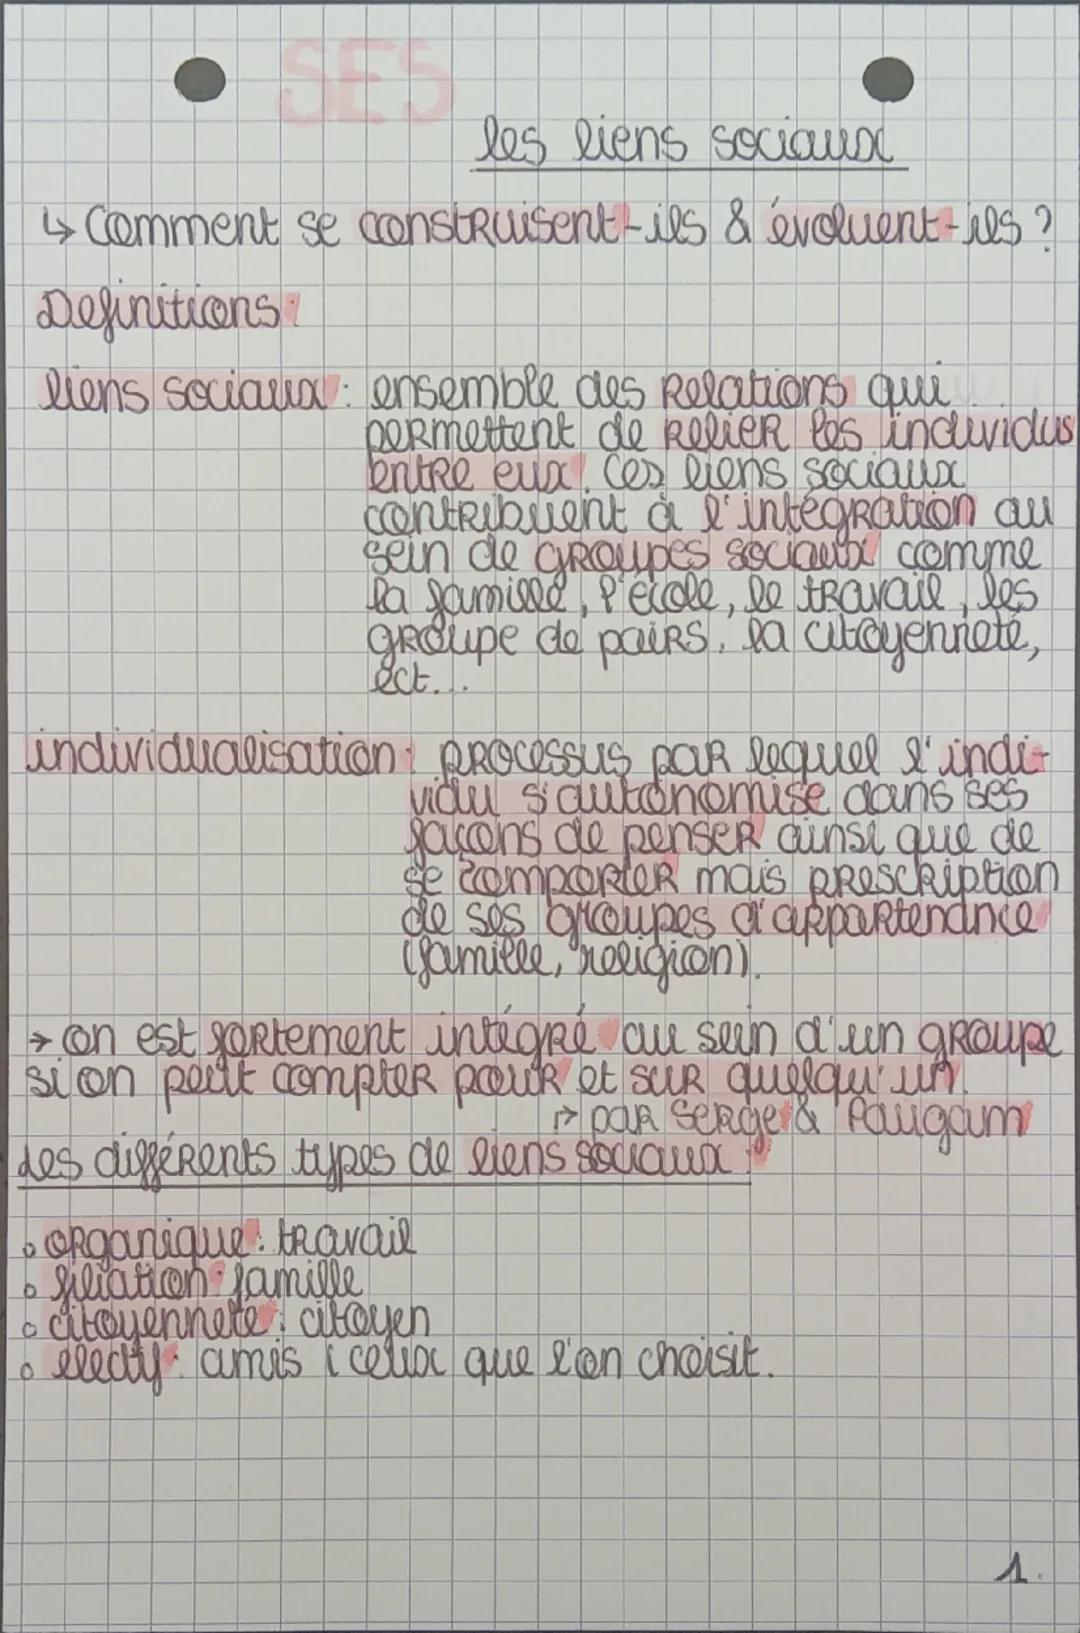 SES
les liens sociaux
↳ Comment se construisent-ils & évoluent-ils ?
Definitions :
liens sociaux : ensemble des relations qui
permettent de relier les individus
entre eux. Ces liens sociaux
contribuent à l'intégration au
sein de groupes sociaux comme
la famille, l'école, le travail, les
groupe de pairs, la citoyenneté,
ect...
individualisation : processus par lequel l'indi-
vidu s'autonomise dans ses
façons de penser ainsi que de
se comporter mais prescription
de ses groupes d'appartenance
(famille, religion).
→ on est fortement intégré au sein d'un groupe
si on peut compter pour et sur quelqu'un.
↱ par Serge & Paugam
Les différents types de liens sociaux :
o organique : travail
o filiation : famille
o citoyenneté : citoyen
o electif : amis ( ceux que l'on choisit.
1.